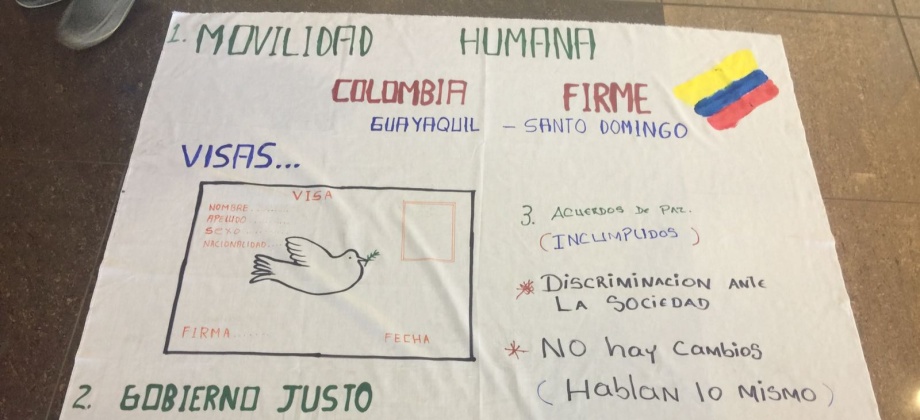 1. MOVILIDAD HUMANA
COLOMBIA FIRME
GUAYAQUIL - SANTO DOMINGO
VISAS...
VISA
NOMBRE.......
APELLIDO.....
SEXO.....
NACIONALIDAD...
FIRMA.......
FECHA
2. GOBIERNO JUSTO
3. ACUERDOS DE PAZ.
(INCUMPLIDOS)
* DISCRIMINACION ANTE
LA SOCIEDAD
* NO hay cambios
(Hablan lo mismo)